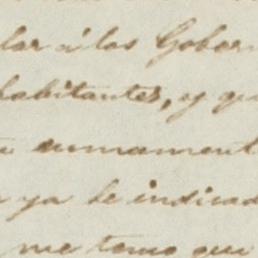 lar á los Gober
habitantes, y que
armament
ya he indicad
me temo que